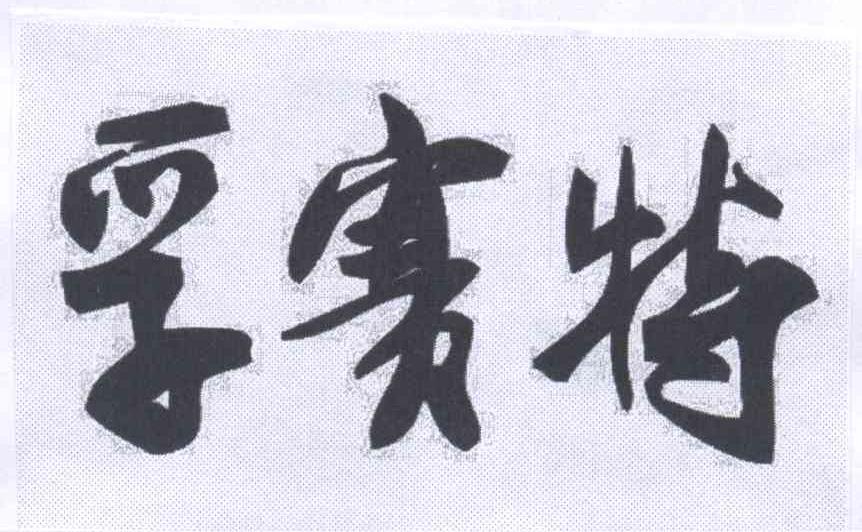 孚赛特